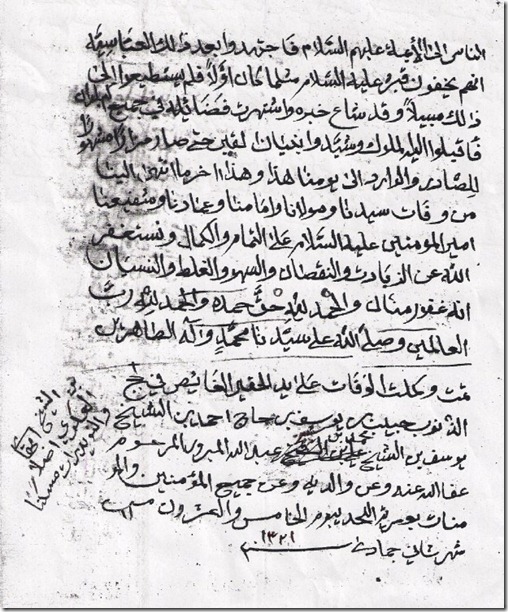 الناس الى الأئمة عليهم السلام فاجتهدوا بعد ذلك العباسية
انهم يخفون قبره عليه السلام مثلما كان اولاً فلم يستطيعوا الى
ذلك سبيلاً وقد شاع خبره واشتهرت فضائله في جميع
فاقبلوا اليه الملوك وشيدوا بنيان القبر حتى صار مزاراً مشهوراً
للصادر والوارد الى يومنا هذا وهذا اخر ما انتهى الينا
من وفات سيدنا ومولانا وامامنا وعمادنا وشفيعنا
امير المؤمنين عليه السلام على التمام والكمال ونستغفر
الله عن الزيادة والنقصان والسهو والغلط والنسيان
انه غفور منان والحمد لله حق حمده والحمد لله رب
العالمين وصلى الله على سيدنا محمد وآله الطاهرين
تمت وكملت الوفات على يد الحقير الغائص في لج
الذنوب حبيب بن يوسف بن حاج احمد بن الشيخ
يوسف بن الشيخ علي بن الشيخ عبدالله المبرور المرحوم
عفا الله عنه وعن والديه وعن جميع المؤمنين والمؤ
منات بعصر الاحد يوم الخامس والعشرون من
شهر ثاني جمادى ١٣٢١
اصلاً
مسكنا